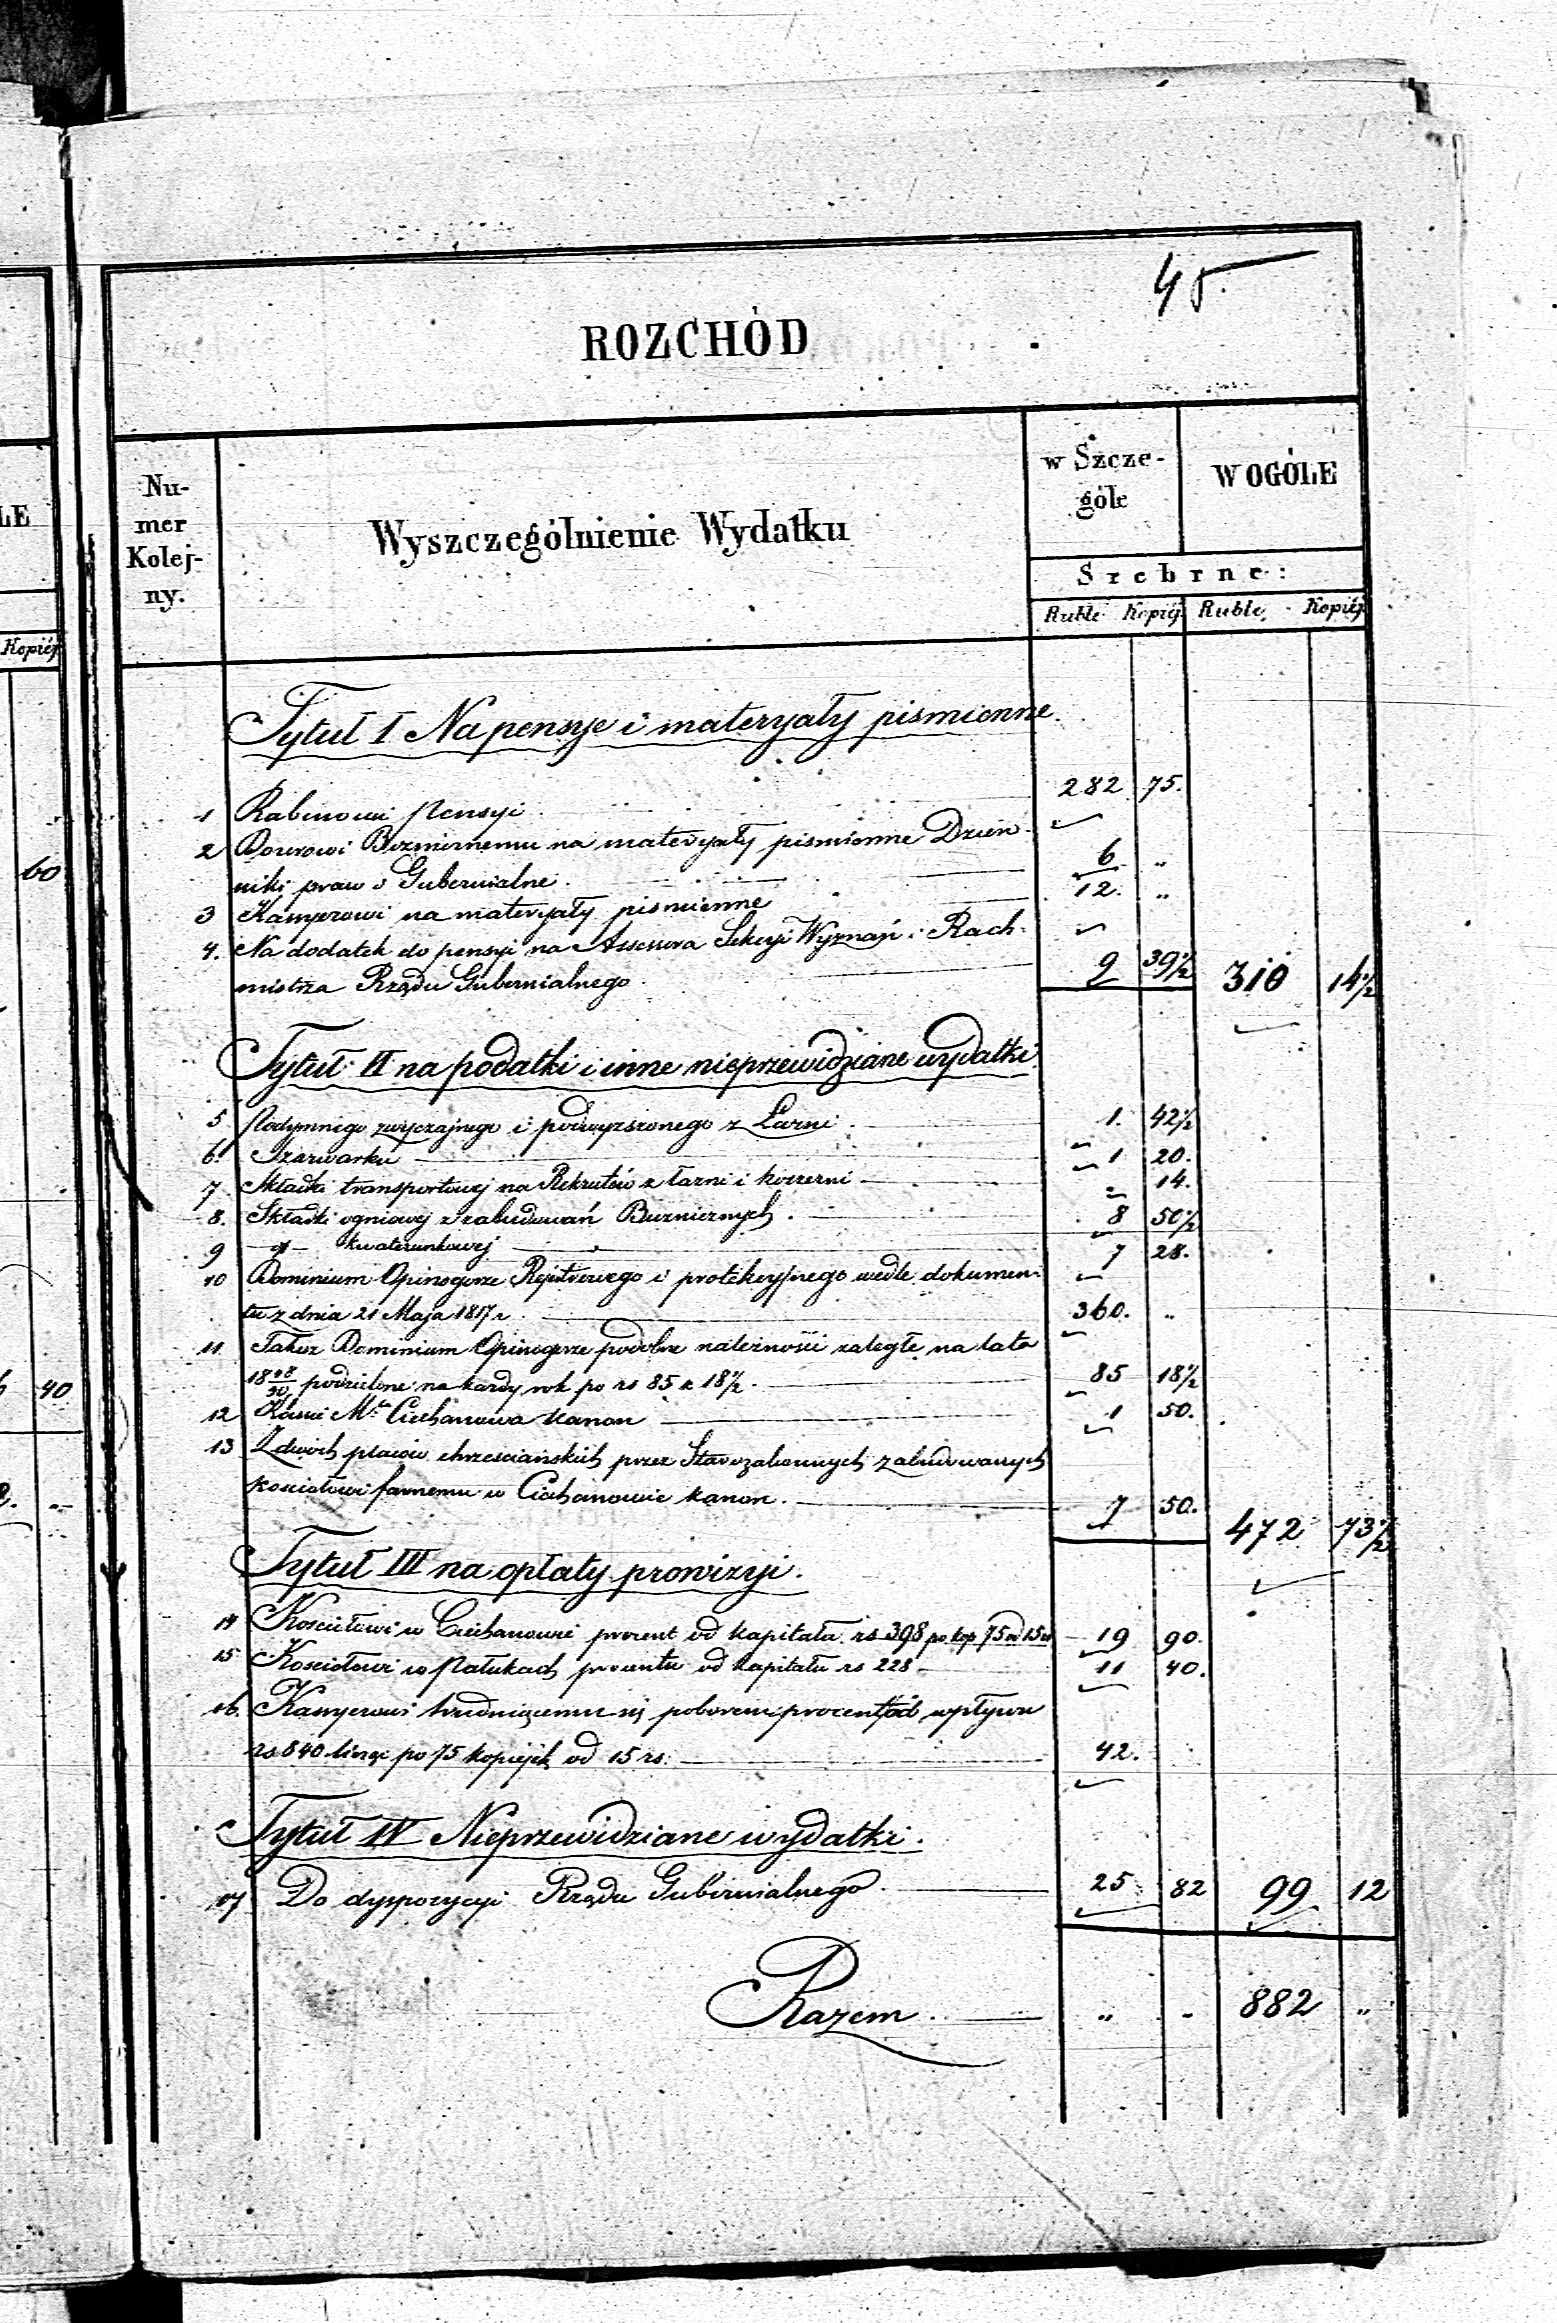 45.
ROZCHÓD
Nu-
mer
Kolej-
ny.
Wyszczególnienie Wydatku
w Szcze-
góle
W OGÓLE
Srebrne:
Ruble Kopiéj Ruble Kopiéj
LE
Kopiéj
60
40
Tytuł I Na pensye i materyały pismienne.
1 Rabinowi pensyi 282 75.
2 Dozorowi Bożnicznemu na materyały pismienne Dzien-
niki praw i Gubernialne. 6 "
3 Kassyerowi na materyały pismienne 12. "
4. Na dodatek do pensyi na Assessora Sekcyi Wyznań i Rach-
mistrza Rządu Gubernialnego. 9 39½ 310 14½
Tytuł II na podatki i inne nieprzewidziane wydatki
5. Podymnego zwyczajnego i podwyższonego z Łazni. 1. 42½
6. Szarwarku 1 20.
7 Składki transportowej na Rekrutów z łazni i koszerni " 14.
8. Składki ogniowej z zabudowań Bożnicznych. 8 50½
9 -d- kwaterunkowej 7 28.
10 Dominium Opinogorze Rejestrowego i protekcyjnego wedle dokumen-
tu z dnia 21 Maja 1817 r. 360. "
11 Takoz Dominium Opinogorze podobne należności zaległe na lata
18 48/50 podzielone na każdy rok po rs 85 k 18½. 85 18½
12 Kassie Mta Ciechanowa kanon 1 50.
13 Z dwóch placów chrześciańskich przez Starozakonnych zabudowanych
kościołowi farnemu w Ciechanowie kanon. 7 50. 472 73½
Tytuł III na opłaty prowizyi.
14 Kościołowi w Ciechanowie procent od kapitału rs 398 po kop 75 od 15 rs 19 90.
15 Kościołowi w Pałukach procentu od kapitału rs 228 11 40.
16. Kassyerowi trudniącemu się poborem procent od wpływu
rs 840 licząc po 75 kopiejek od 15 rs. 42.
Tytuł IV Nieprzewidziane wydatki.
17 Do dyspozycyi Rządu Gubernialnego. 25 82 99 12
Razem. " " 882 "